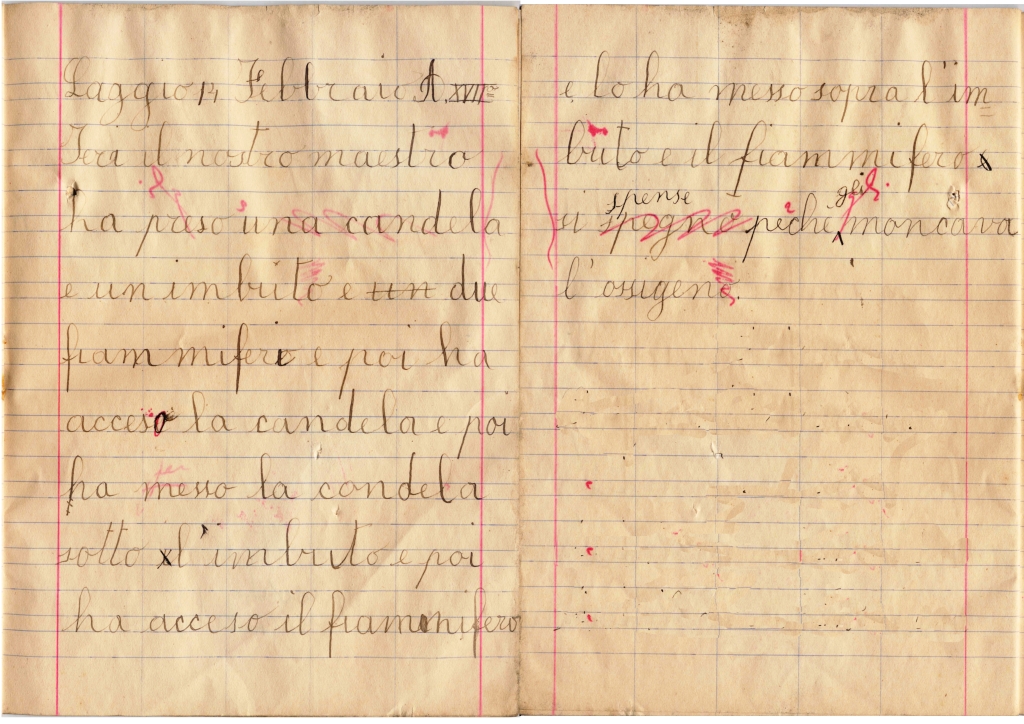 Laggio 14 Febbraio A. XVII E
Ieri il nostro maestro
ha preso una candela
e un imbuto e un due
fiammifero e poi ha
acceso la candela e poi
ha messo la candela
sotto l'imbuto e poi
ha acceso il fiammifero
e lo ha messo sopra l'im
buto e il fiammifero
si spegne spense pèche gli mancava
l'ossigeno.